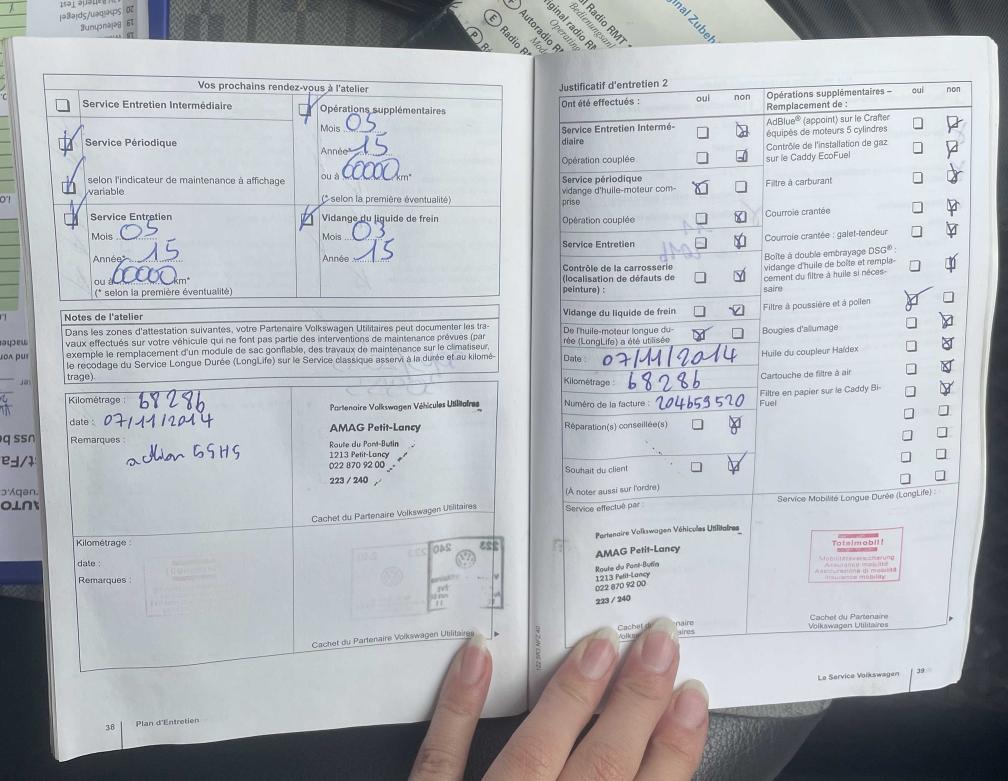 20 Scheiben/Spiegel
19 Beleuchtung
Original Radio RMT
Bedienungsanl
Operating
E Radio R
Autoradio R
Vos prochains rendez-vous à l'atelier
Service Entretien Intermédiaire
Service Périodique
selon l'indicateur de maintenance à affichage
variable
Service Entretien
Mois 05
Année* 15
ou à 60000 km*
(* selon la première éventualité)
Opérations supplémentaires
Mois 05
Année* 15
ou à 60000 km*
(* selon la première éventualité)
Vidange du liquide de frein
Mois 03
Année 15
Notes de l'atelier
Dans les zones d'attestation suivantes, votre Partenaire Volkswagen Utilitaires peut documenter les tra-
vaux effectués sur votre véhicule qui ne font pas partie des interventions de maintenance prévues (par
exemple le remplacement d'un module de sac gonflable, des travaux de maintenance sur le climatiseur,
le recodage du Service Longue Durée (LongLife) au Service classique asservi à la durée et au kilomé-
trage).
Kilométrage : 68286
date : 07/11/2014
Remarques :
action 55H5
Partenaire Volkswagen Véhicules Utilitaires
AMAG Petit-Lancy
Route du Pont-Butin
1213 Petit-Lancy
022 870 92 00
223 / 240
Cachet du Partenaire Volkswagen Utilitaires
Kilométrage :
date :
Remarques :
Cachet du Partenaire Volkswagen Utilitaires
38 Plan d'Entretien
Justificatif d'entretien 2
Ont été effectués : oui non
Service Entretien Intermé-
diaire
Opération couplée
Service périodique
vidange d'huile-moteur com-
prise
Opération couplée
Service Entretien
Contrôle de la carrosserie
(localisation de défauts de
peinture) :
Vidange du liquide de frein
De l'huile-moteur longue du-
rée (LongLife) a été utilisée
Date : 07/11/2014
Kilométrage : 68286
Numéro de la facture : 204659520
Réparation(s) conseillée(s)
Souhait du client
(À noter aussi sur l'ordre)
Service effectué par :
Partenaire Volkswagen Véhicules Utilitaires
AMAG Petit-Lancy
Route du Pont-Butin
1213 Petit-Lancy
022 870 92 00
223 / 240
Opérations supplémentaires – oui non
Remplacement de :
AdBlue® (appoint) sur le Crafter
équipés de moteurs 5 cylindres
Contrôle de l'installation de gaz
sur le Caddy EcoFuel
Filtre à carburant
Courroie crantée
Courroie crantée : galet-tendeur
Boîte à double embrayage DSG® :
vidange d'huile de boîte et rempla-
cement du filtre à huile si néces-
saire
Filtre à poussière et à pollen
Bougies d'allumage
Huile du coupleur Haldex
Cartouche de filtre à air
Filtre en papier sur le Caddy Bi-
Fuel
Service Mobilité Longue Durée (LongLife) :
Totalmobil!
Mobilitätsversicherung
Assurance mobilité
Assicurazione di mobilità
Insurance mobility
Cachet du Partenaire
Volkswagen Utilitaires
Le Service Volkswagen 39